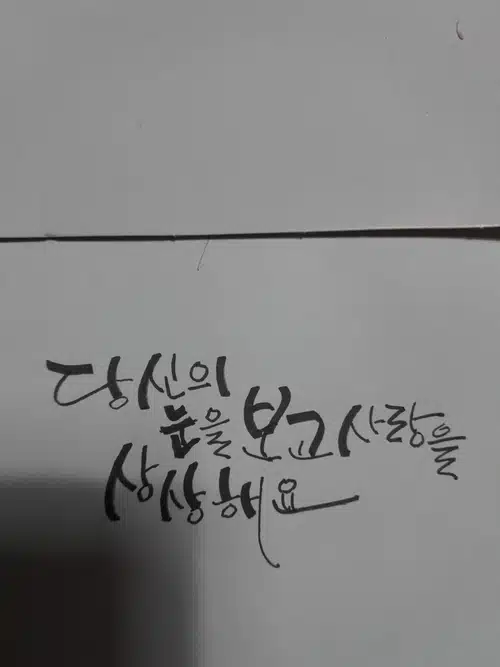 당신의
눈을 보고 사랑을
상상해요